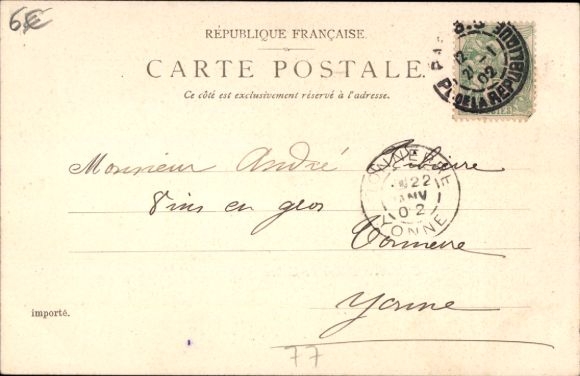 6€
RÉPUBLIQUE FRANÇAISE.
CARTE POSTALE.
Ce côté est exclusivement réservé à l'adresse.
PL. DE LA REPUBLIQUE
21 -1
02
Monsieur André
Vins en gros
Tonnerre
Yonne
TONNERRE
22
JANV
02
YONNE
importé.
77